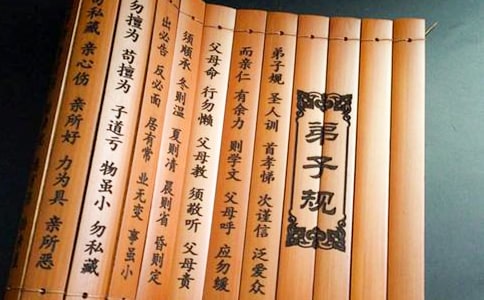 弟子规
弟子规 圣人训 首孝悌 次谨信 泛爱众
而亲仁 有余力 则学文 父母呼 应勿缓
父母命 行勿懒 父母教 须敬听 父母责
须顺承 冬则温 夏则清 晨则省 昏则定
出必告 反必面 居有常 业无变 事虽小
勿擅为 苟擅为 子道亏 物虽小 勿私藏
苟私藏 亲心伤 亲所好 力为具 亲所恶